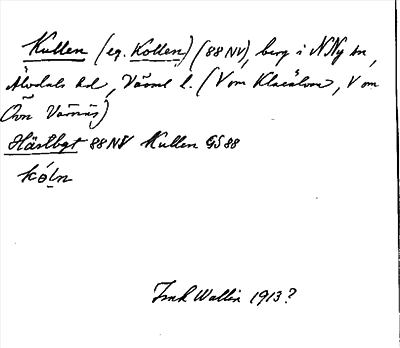 Kullen (eg. Kollen) (88 NV), berg i N Ny sn,
Älvdals hd, Värml l. (V om Klarälven, V om
Övre Värnäs)
Hästbgt 88 NV Kullen GS 88
kóln
Frnk Wallin 1913?